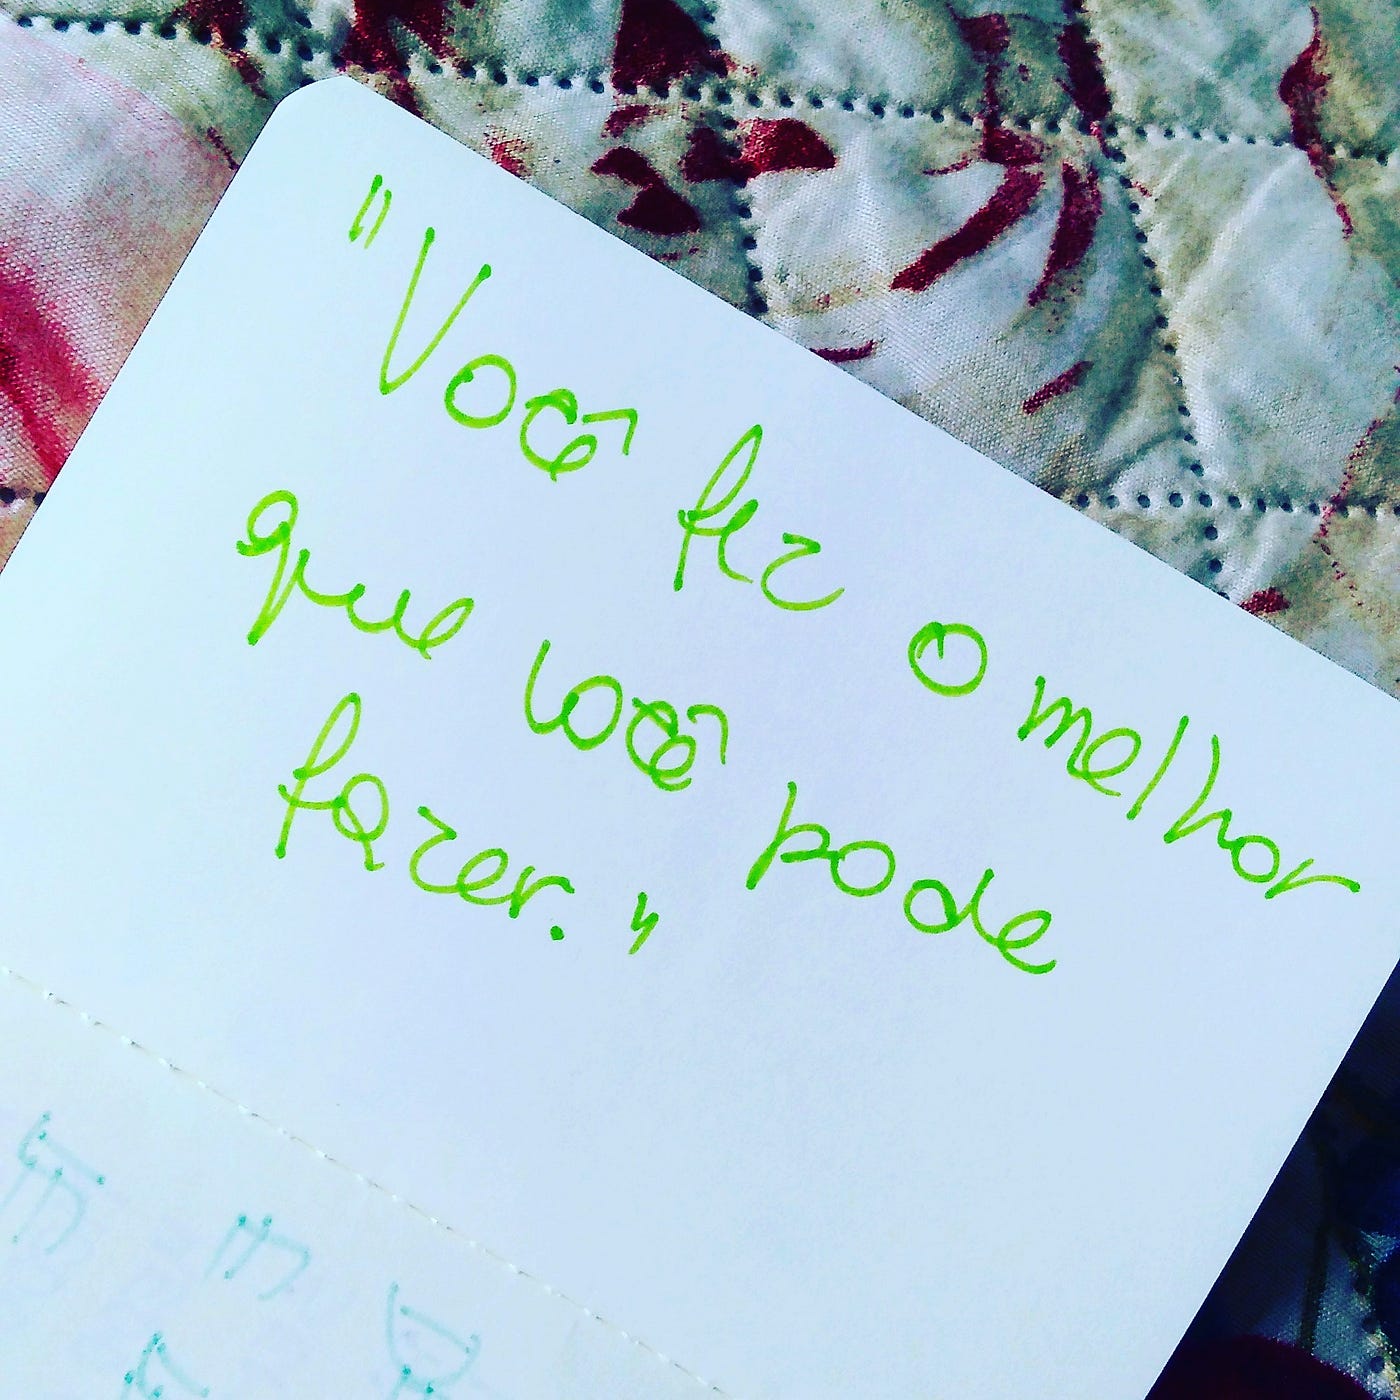 "Você fez o melhor
que você pode
fazer."